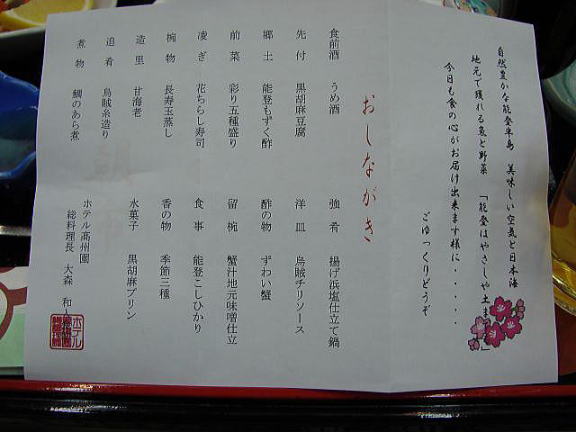 自然豊かな能登半島　美味しい空気と日本海
地元で獲れる魚と野菜　「能登はやさしや土ま
今日も食の心がお届け出来ます様に・・・・・
ごゆっくりどうぞ
おしながき
食前酒　うめ酒
先付　黒胡麻豆腐
郷土　能登もずく酢
前菜　彩り五種盛り
凌ぎ　花ちらし寿司
椀物　長寿玉蒸し
造里　甘海老
追肴　烏賊糸造り
煮物　鯛のあら煮
強肴　揚げ浜塩仕立て鍋
洋皿　烏賊チリソース
酢の物　ずわい蟹
留椀　蟹汁地元味噌仕立
食事　能登こしひかり
香の物　季節三種
水菓子　黒胡麻プリン
ホテル高州園
総料理長　大森　和
ホテル